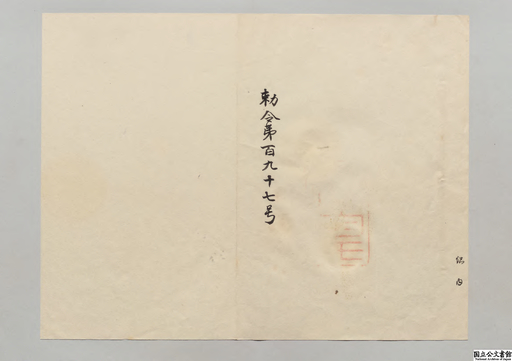 勅令第百九十七号
内
国立公文書館
National Archives of Japan